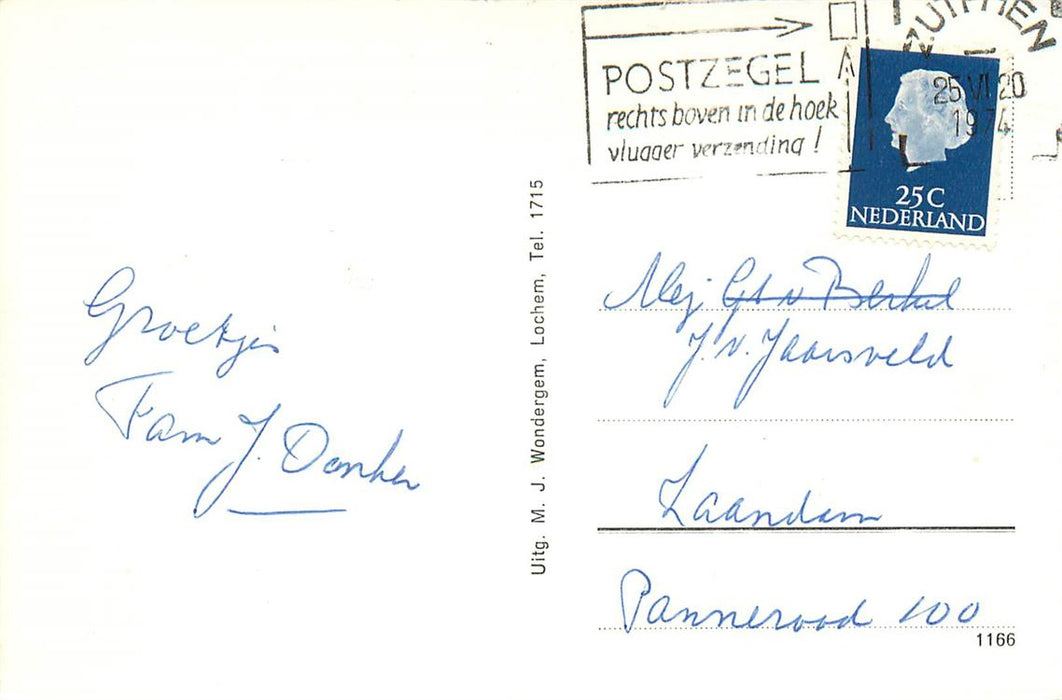 POSTZEGEL
rechts boven in de hoek
vlugger verzending!
ZUTPHEN
25 VI 20
1974
25 C
NEDERLAND
Groetjes
Fam J. Donker
Uitg. M. J. Wondergem, Lochem, Tel. 1715
Mej G v Berkel
J. v. Jaarsveld
Zaandam
Pannerood 100
1166